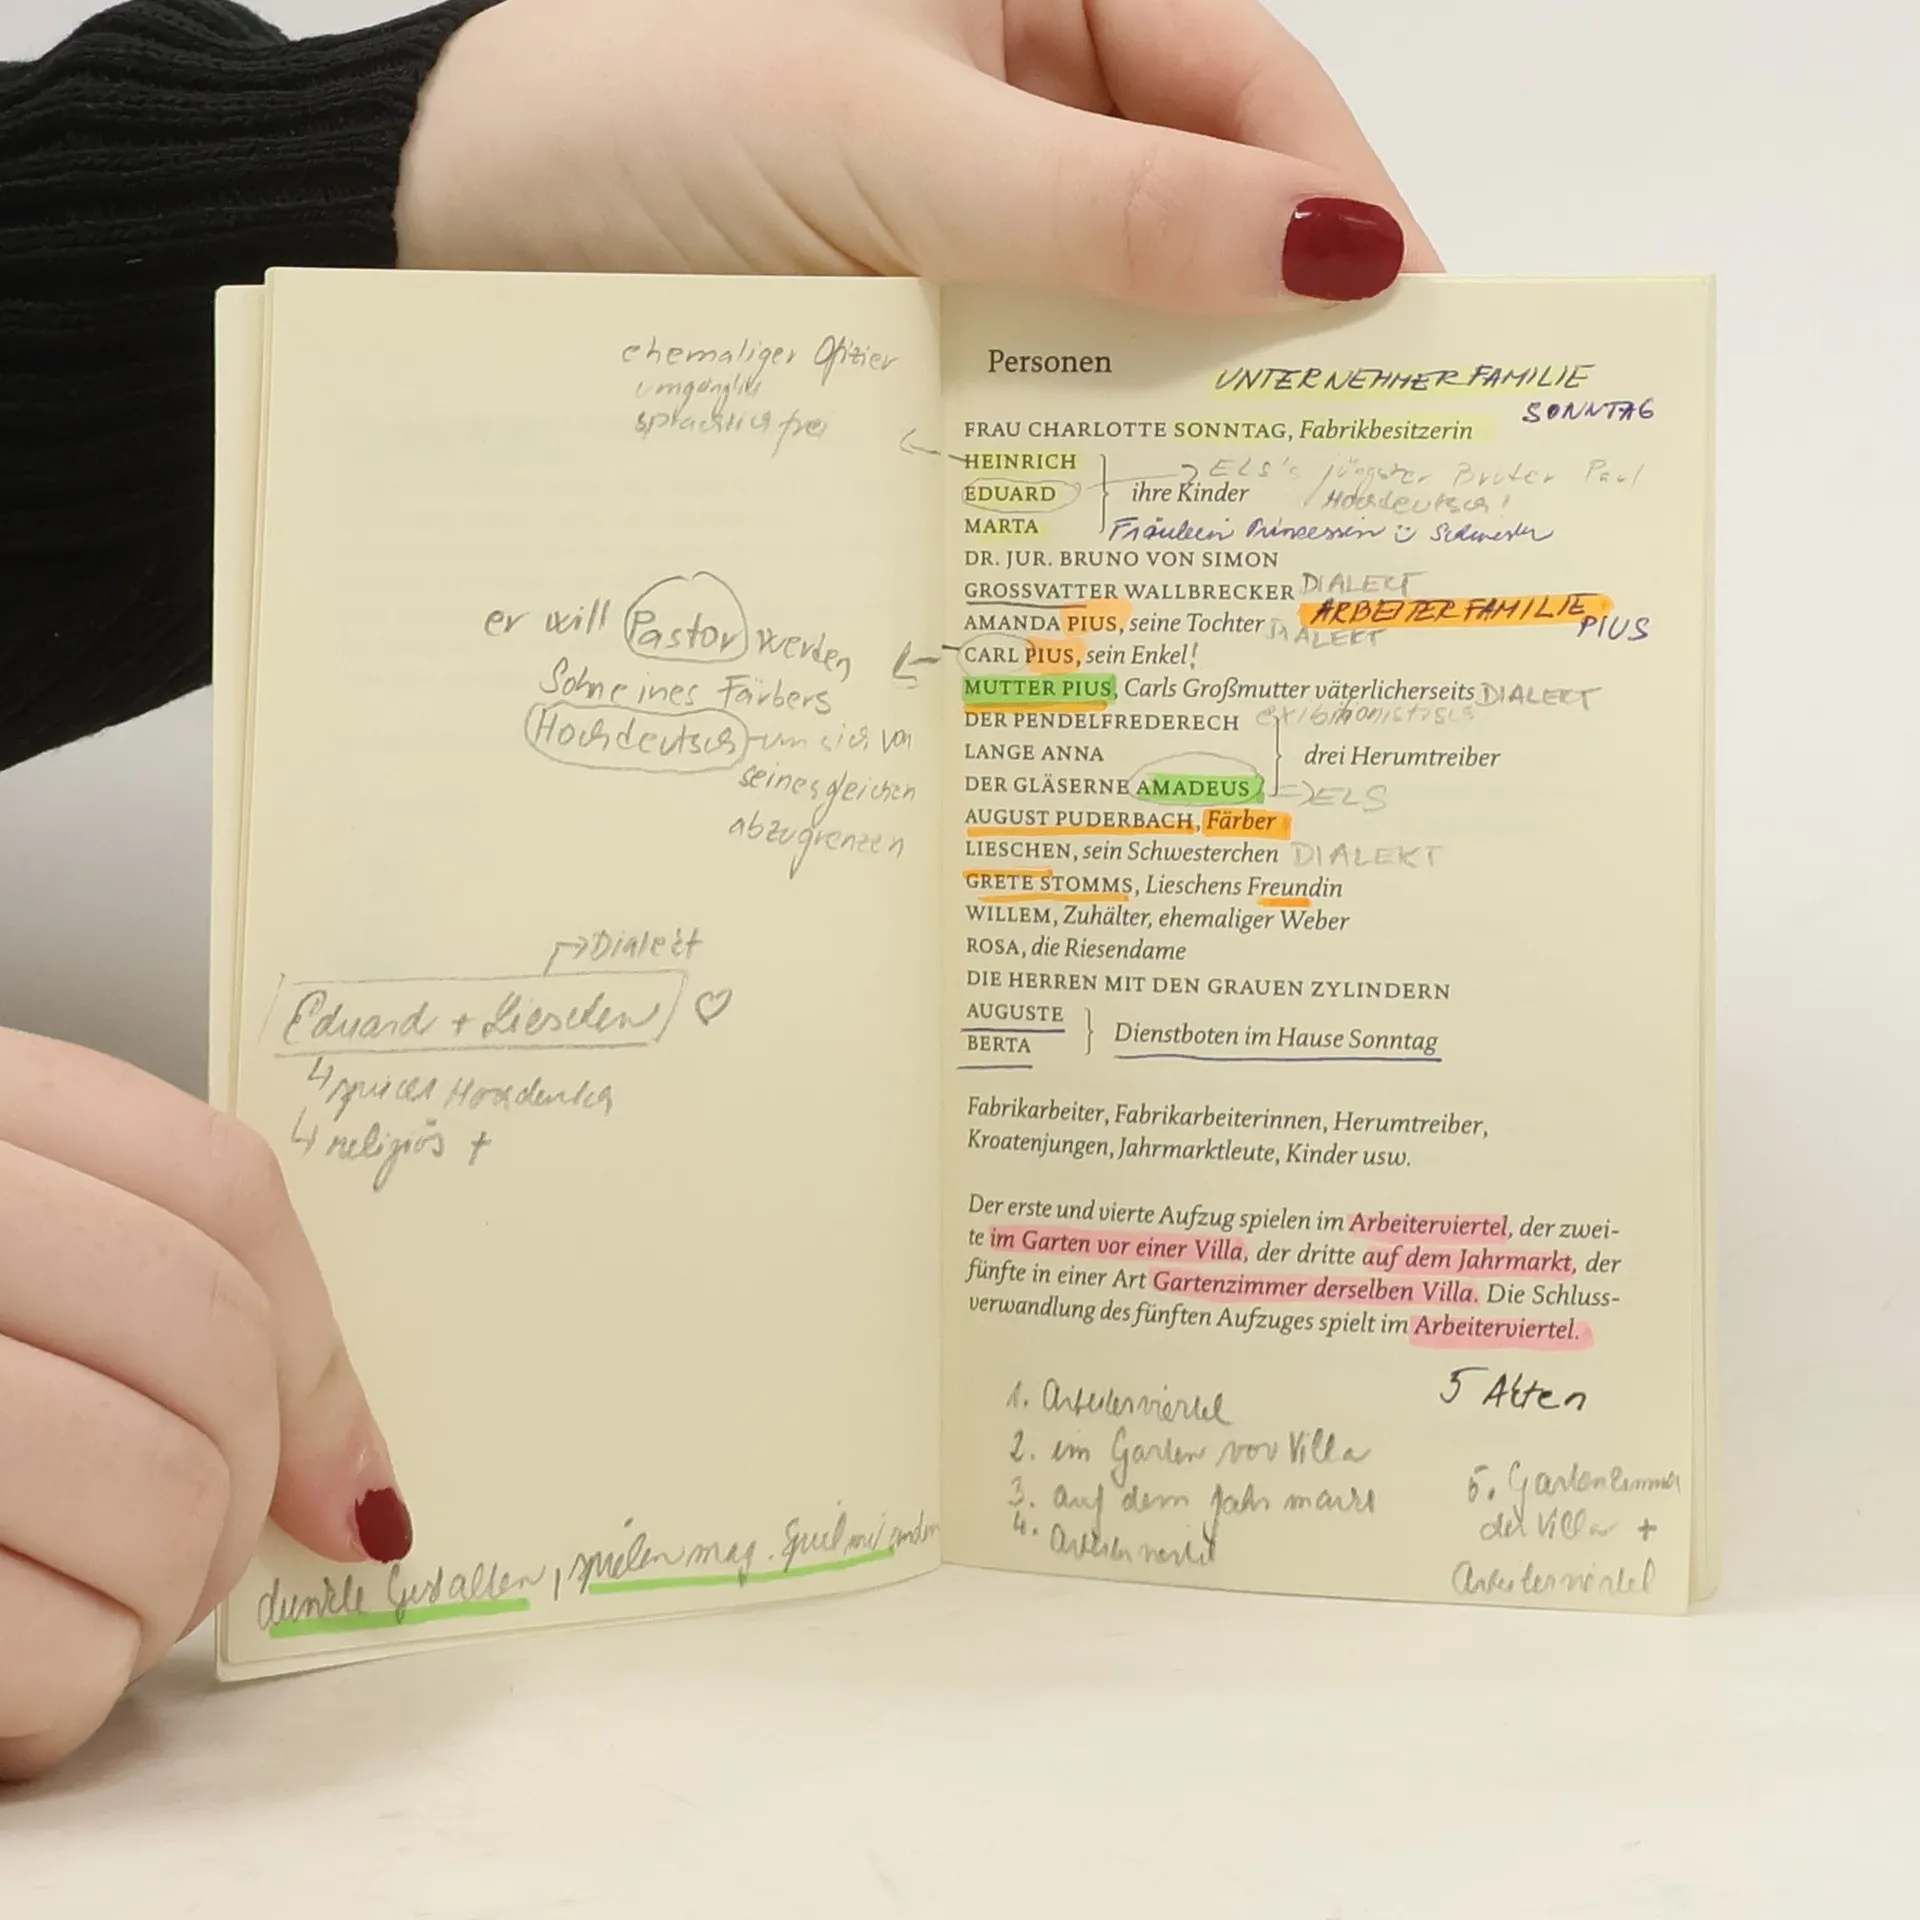 ehemaliger Offizier
umgänglich
sprachlich frei
er will Pastor werden,
Sohn eines Färbers
Hochdeutsch um sich von
seinesgleichen
abzugrenzen
→Dialekt
Eduard + Lieschen ♡
↳ spricht Hochdeutsch
↳ religiös †
dunkle Gestalten, spielen mag. Spiel mit
Personen
UNTERNEHMERFAMILIE
SONNTAG
FRAU CHARLOTTE SONNTAG, Fabrikbesitzerin
HEINRICH
EDUARD
MARTA
ihre Kinder
ELS's jüngster Bruder Paul
Hochdeutsch!
Fräulein Prinzessin Schwester
DR. JUR. BRUNO VON SIMON
GROSSVATTER WALLBRECKER DIALEKT
ARBEITERFAMILIE
PIUS
AMANDA PIUS, seine Tochter DIALEKT
CARL PIUS, sein Enkel!
MUTTER PIUS, Carls Großmutter väterlicherseits DIALEKT
DER PENDELFREDERECH exibitionistisch
LANGE ANNA
DER GLÄSERNE AMADEUS
drei Herumtreiber
=> ELS
AUGUST PUDERBACH, Färber
LIESCHEN, sein Schwesterchen DIALEKT
GRETE STOMMS, Lieschens Freundin
WILLEM, Zuhälter, ehemaliger Weber
ROSA, die Riesendame
DIE HERREN MIT DEN GRAUEN ZYLINDERN
AUGUSTE
BERTA
Dienstboten im Hause Sonntag
Fabrikarbeiter, Fabrikarbeiterinnen, Herumtreiber,
Kroatenjungen, Jahrmarktleute, Kinder usw.
Der erste und vierte Aufzug spielen im Arbeiterviertel, der zwei-
te im Garten vor einer Villa, der dritte auf dem Jahrmarkt, der
fünfte in einer Art Gartenzimmer derselben Villa. Die Schluss-
verwandlung des fünften Aufzuges spielt im Arbeiterviertel.
5 Akten
1. Arbeiterviertel
2. im Garten vor Villa
3. auf dem Jahrmarkt
4. Arbeiterviertel
5. Gartenzimmer
der Villa +
Arbeiterviertel